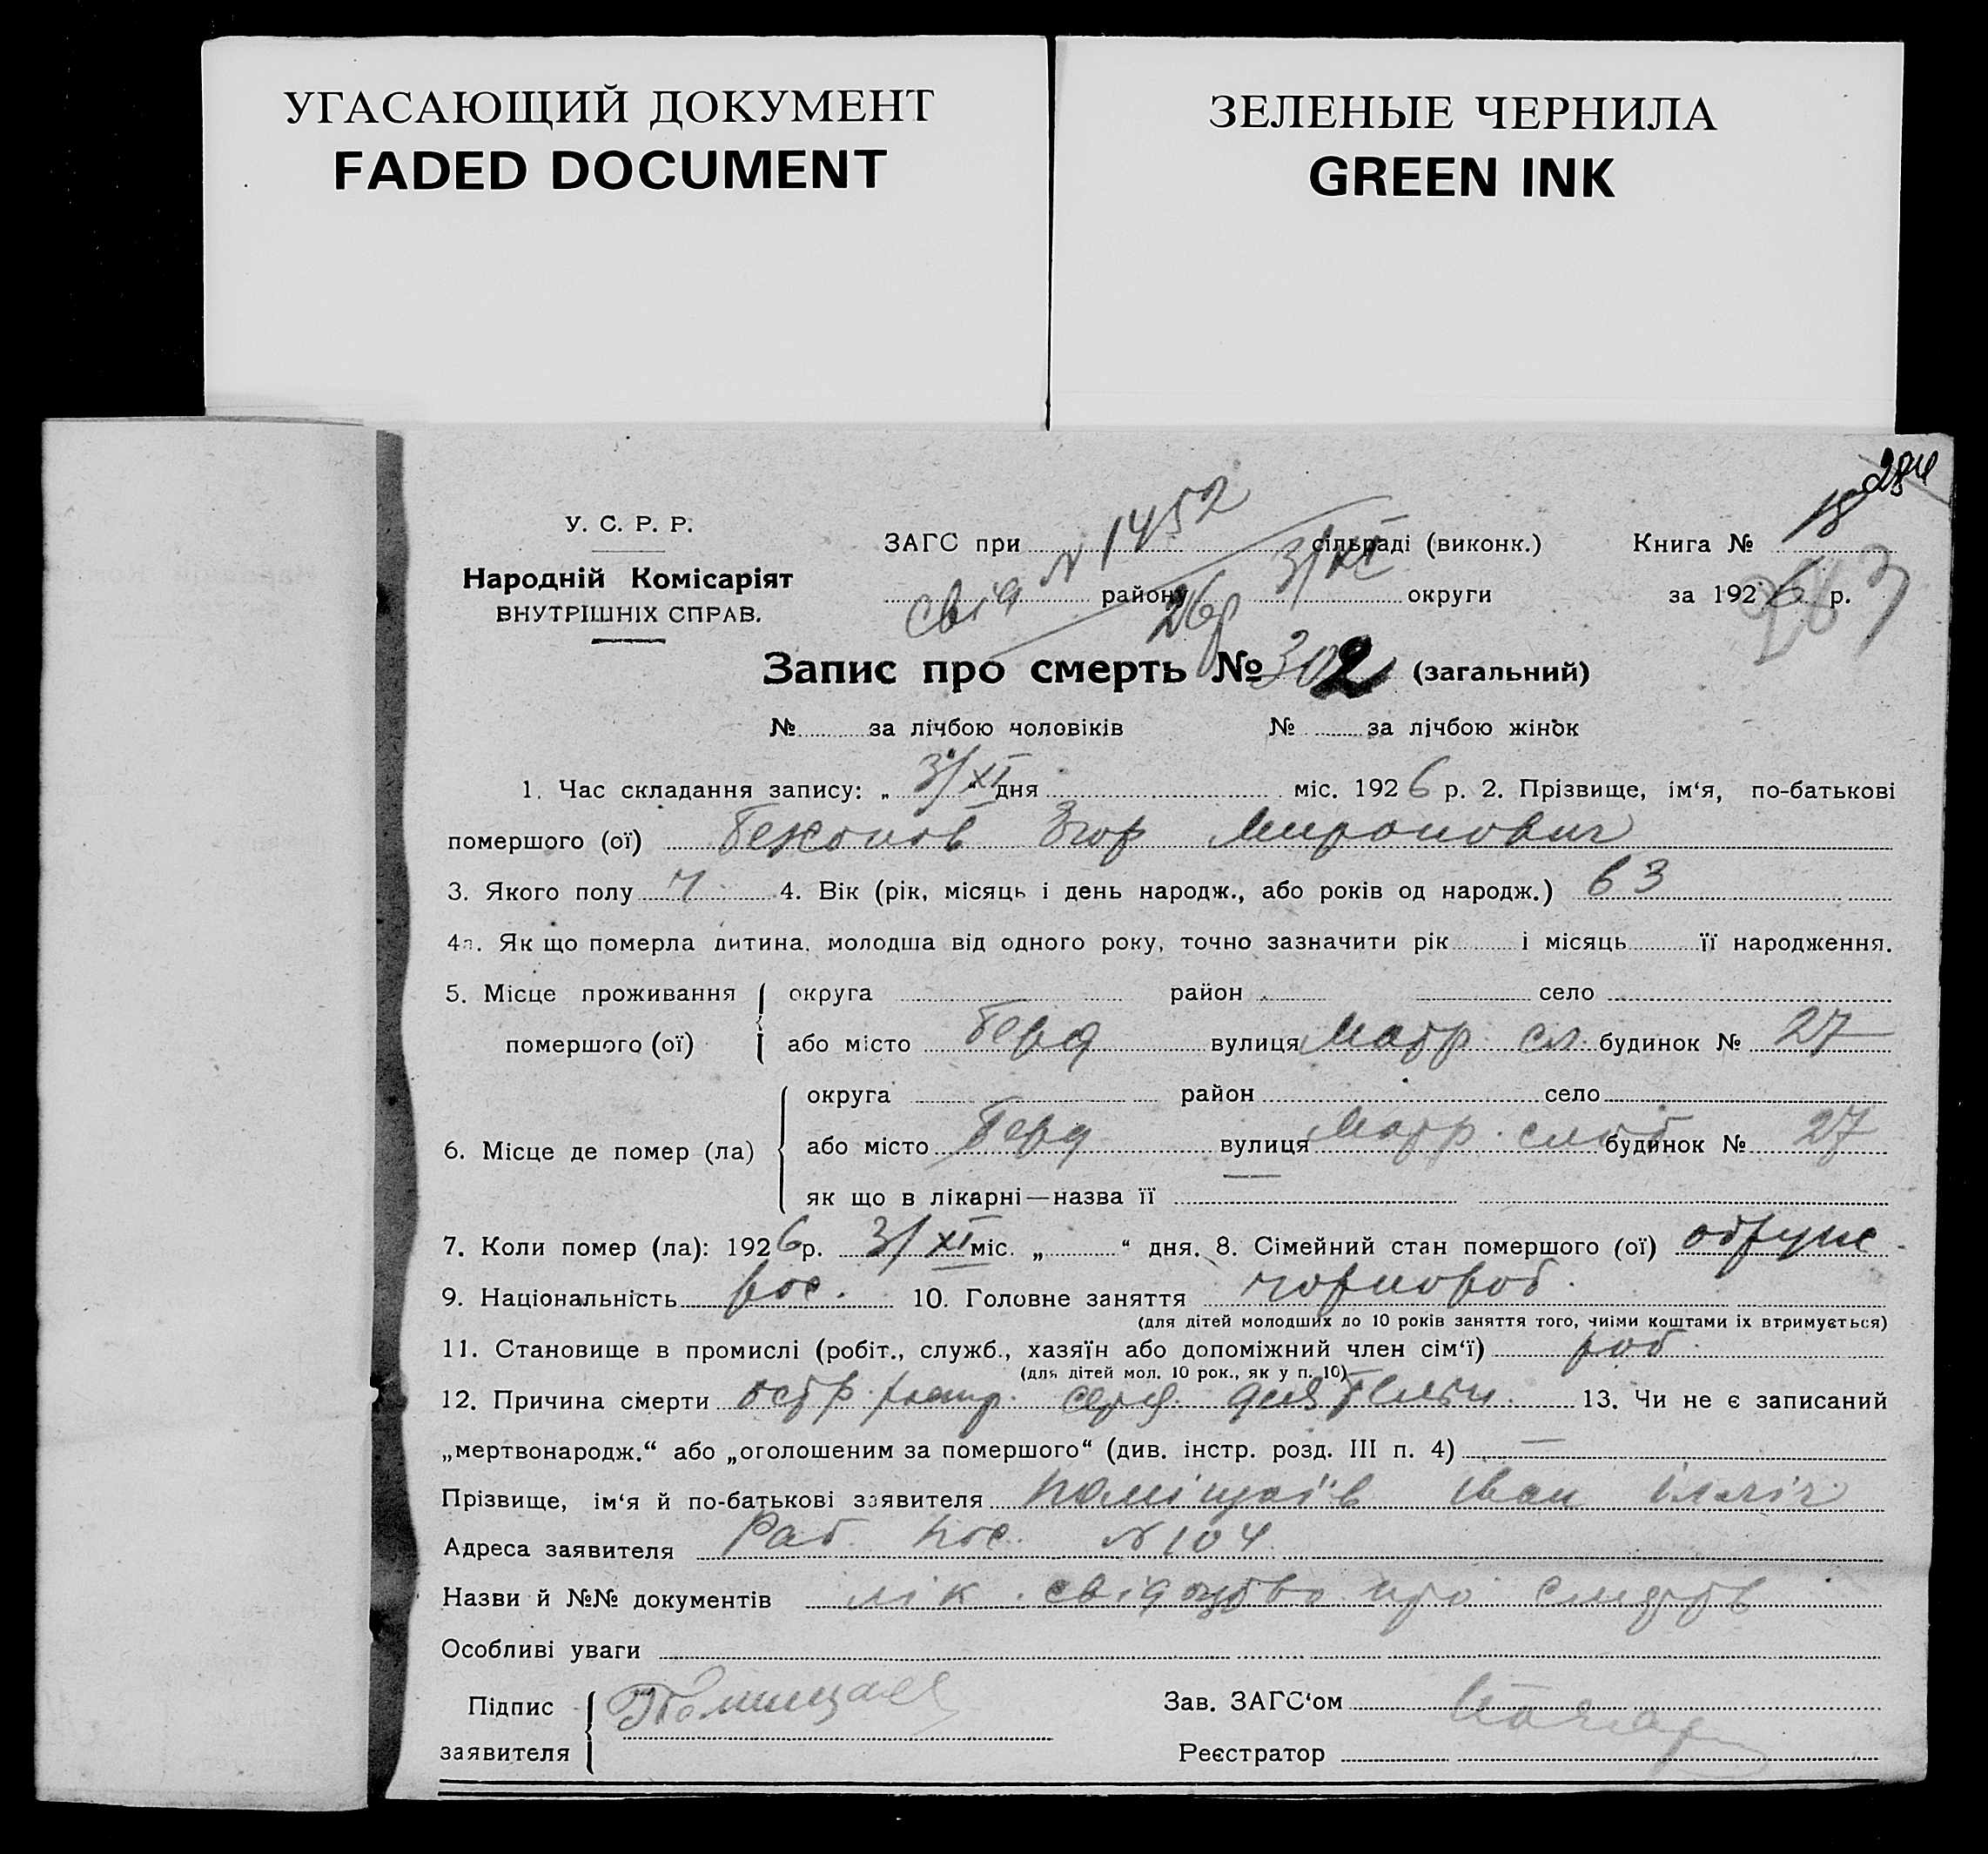 УГАСАЮЩИЙ ДОКУМЕНТ
FADED DOCUMENT
ЗЕЛЕНЫЕ ЧЕРНИЛА
GREEN INK
284
У. С. Р. Р.
Народній Комісаріят
ВНУТРІШНІХ СПРАВ.
ЗАГС при N 1452 сільраді (виконк.)
свід району 26р 3/XI округи
Книга № 18
за 1926 р.
283
Запис про смерть № 302 (загальний)
№ за лічбою чоловіків № за лічбою жінок
1. Час складання запису: „ 3/XI “ дня міс. 1926 р. 2. Прізвище, ім‘я, по-батькові
помершого (ої) Егор Миронович
3. Якого полу ч. 4. Вік (рік, місяць і день народж., або років од народж.) 63
4а. Як що померла дитина, молодша від одного року, точно зазначити рік і місяць її народження.
5. Місце проживання помершого (ої) округа район село
або місто Берд вулиця Матр. сл. будинок № 27
6. Місце де помер (ла) округа район село
або місто Берд вулиця Матр. слоб будинок № 27
як що в лікарні—назва її
7. Коли помер (ла): 1926 р. 3/XI міс. „ “ дня. 8. Сімейний стан помершого (ої) одруж.
9. Національність рос. 10. Головне заняття чорнороб.
(для дітей молодших до 10 років заняття того, чиїми коштами їх втримується)
11. Становище в промислі (робіт., служб., хазяїн або допоміжний член сім‘ї) роб.
(для дітей мол. 10 рок., як у п. 10)
12. Причина смерти остр. серд. 13. Чи не є записаний
„мертвонародж.“ або „оголошеним за помершого“ (див. інстр. розд. III п. 4) —
Прізвище, ім‘я й по-батькові заявителя Поміщаїв Іван Ілліч
Адреса заявителя Раб. пос. N 104
Назви й №№ документів лік. свідоцтво про смерть
Особливі уваги
Підпис заявителя Помищаев
Зав. ЗАГС‘ом
Реєстратор